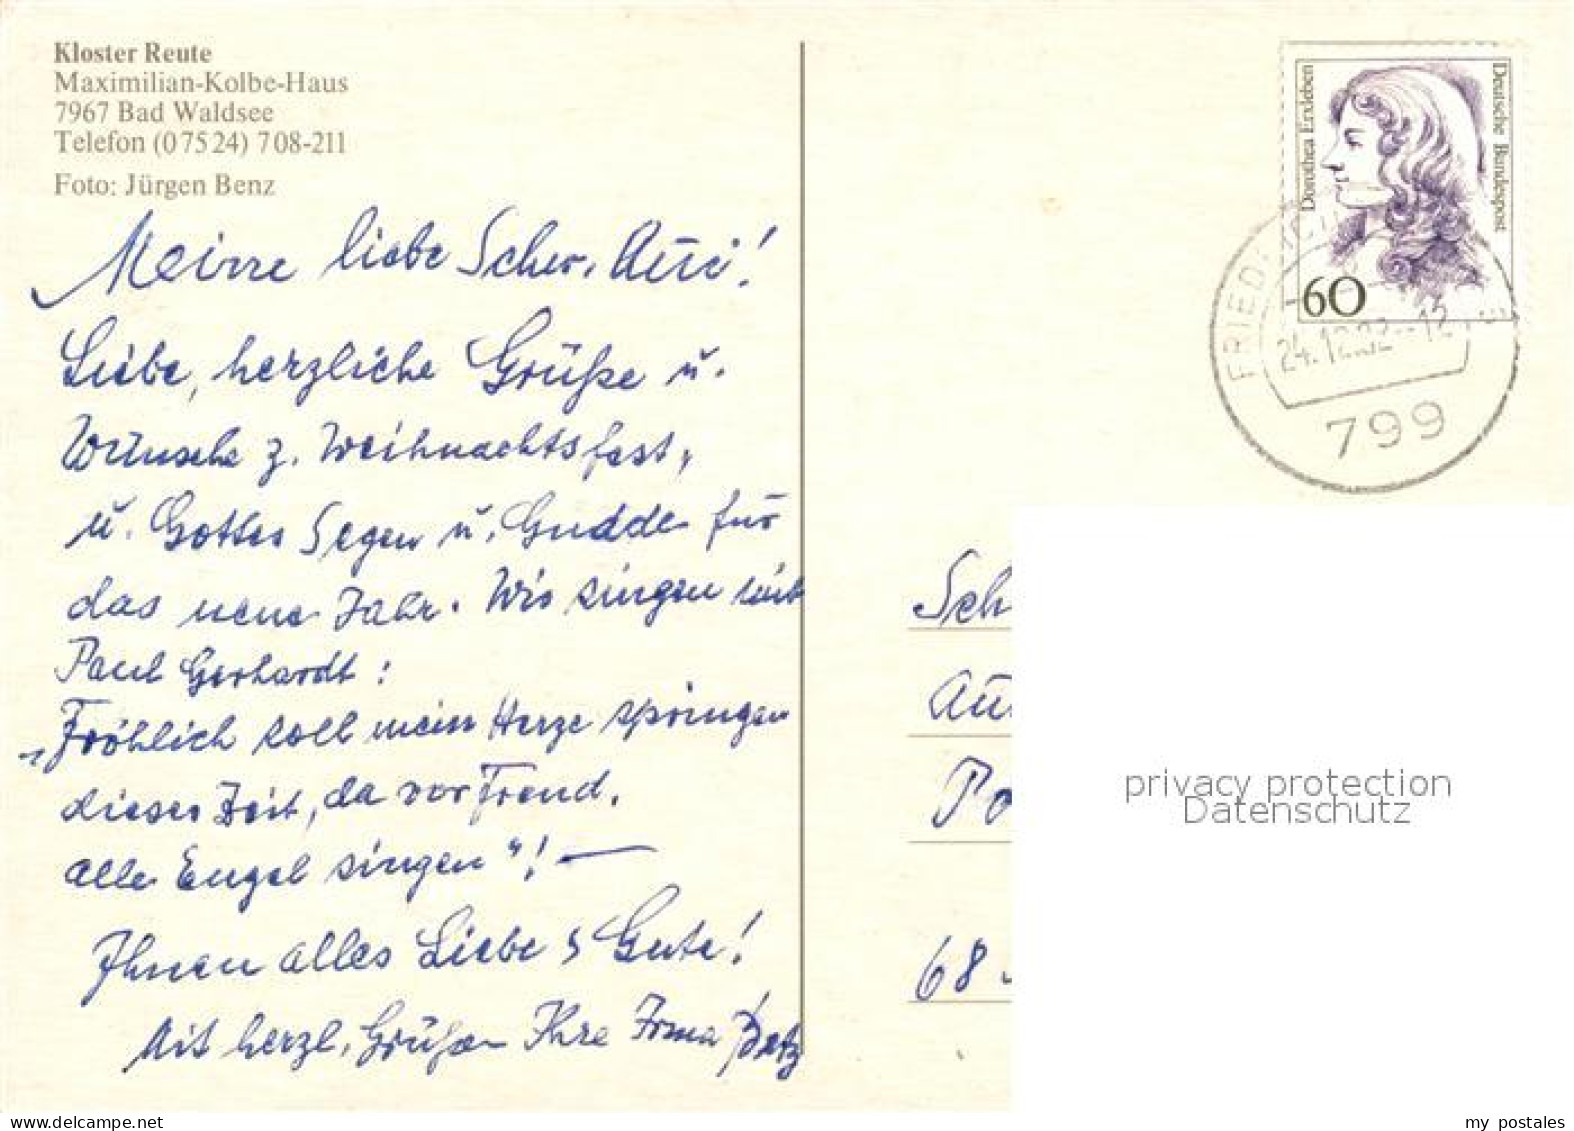 Kloster Reute
Maximilian-Kolbe-Haus
7967 Bad Waldsee
Telefon (0 75 24) 7 08-211
Foto: Jürgen Benz
Meine liebe Schw. !
Liebe, herzliche Grüße u.
Wünsche z. Weihnachtsfest,
u. Gottes Segen u. für
das neue Jahr. Wir singen mit
Paul Gerhardt:
„Fröhlich soll mein Herze springen
dieser Zeit, da vor Freud.
alle Engel singen"! —
Ihnen alles Liebe & Gute!
Mit herzl. Grüßen Ihre Irma
Dorothea Erxleben
Deutsche Bundespost
60
24.12.92.-12
799
Sch
68
privacy protection
Datenschutz
eBay
my postales